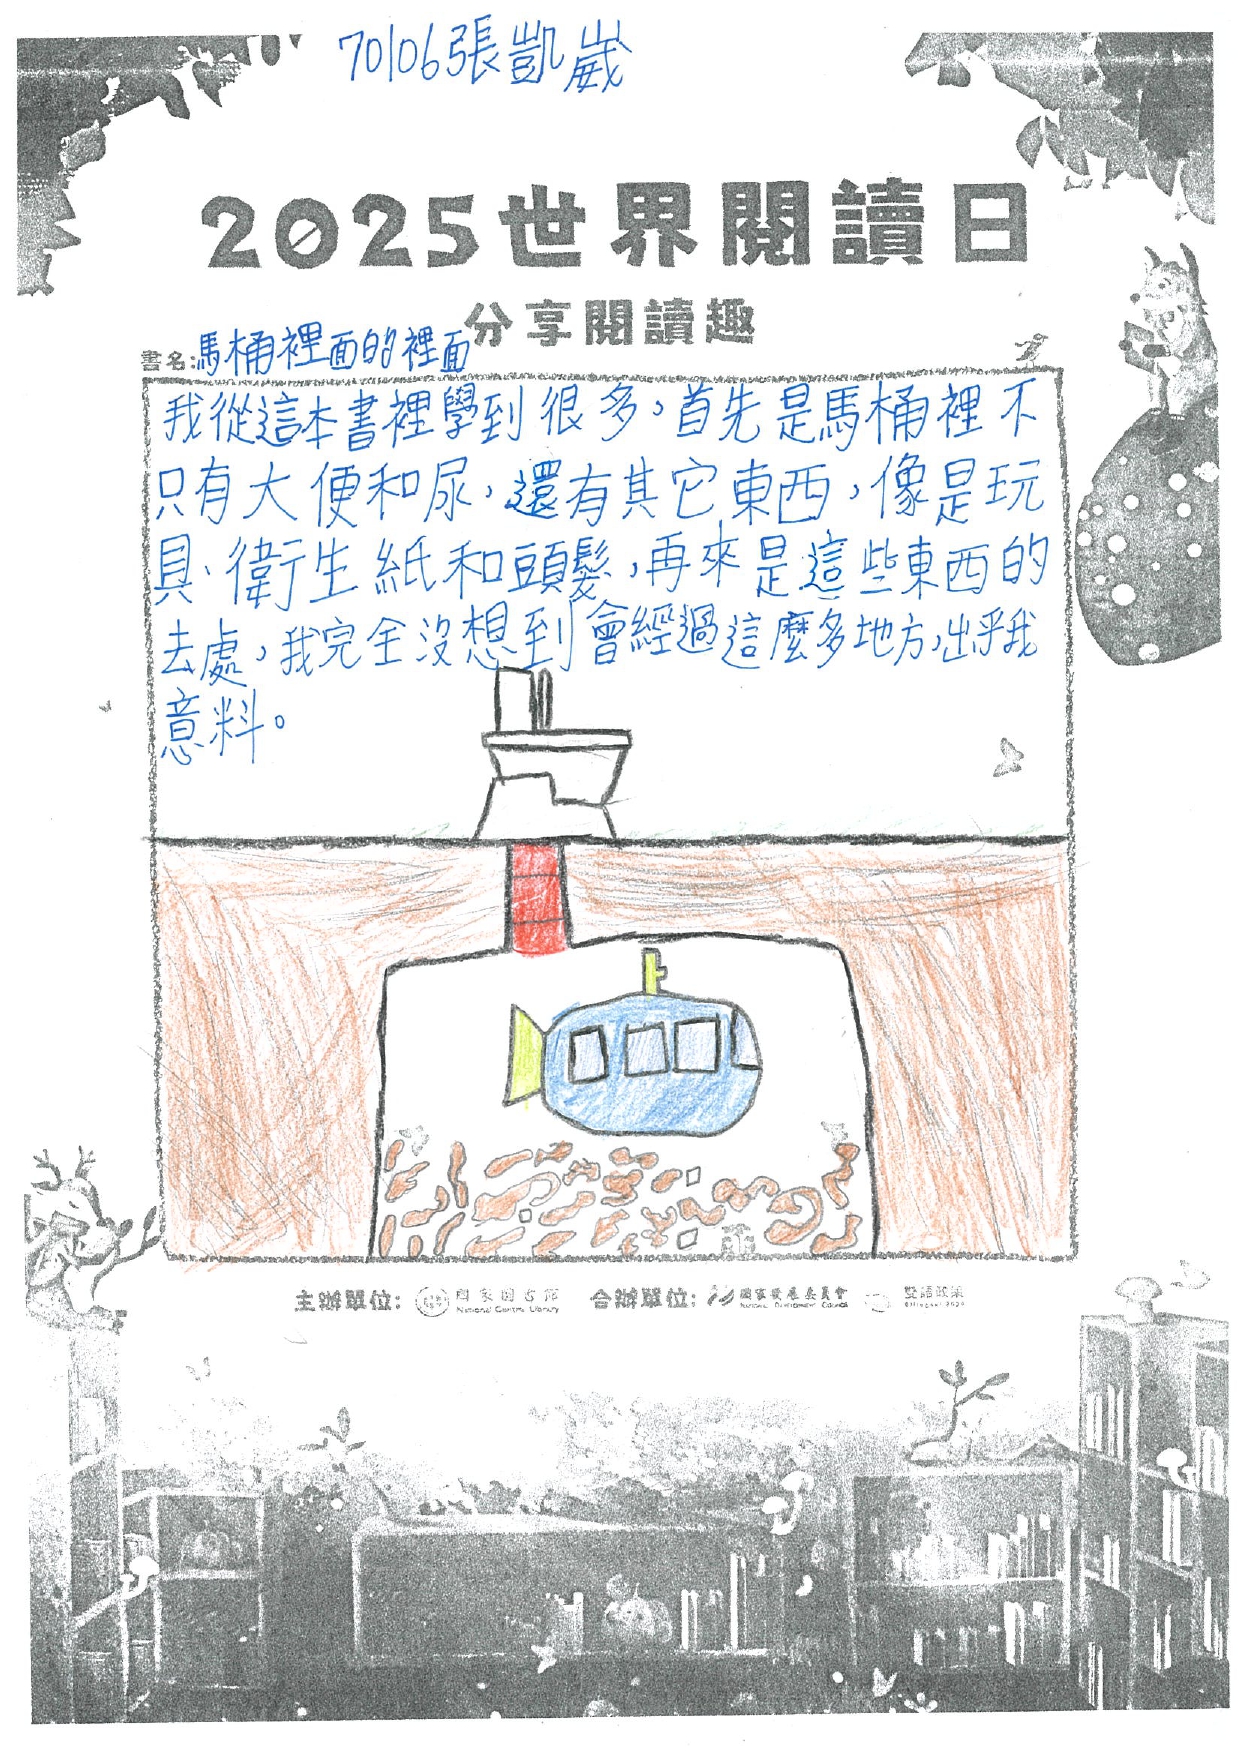 70106張凱崴
2025世界閱讀日
分享閱讀趣
書名:馬桶裡面的裡面
我從這本書裡學到很多,首先是馬桶裡不
只有大便和尿,還有其它東西,像是玩
具、衛生紙和頭髮,再來是這些東西的
去處,我完全沒想到會經過這麼多地方,出乎我
意料。
主辦單位: 國家圖書館 合辦單位: 國家發展委員會 雙語政策
National Central Library National Development Council